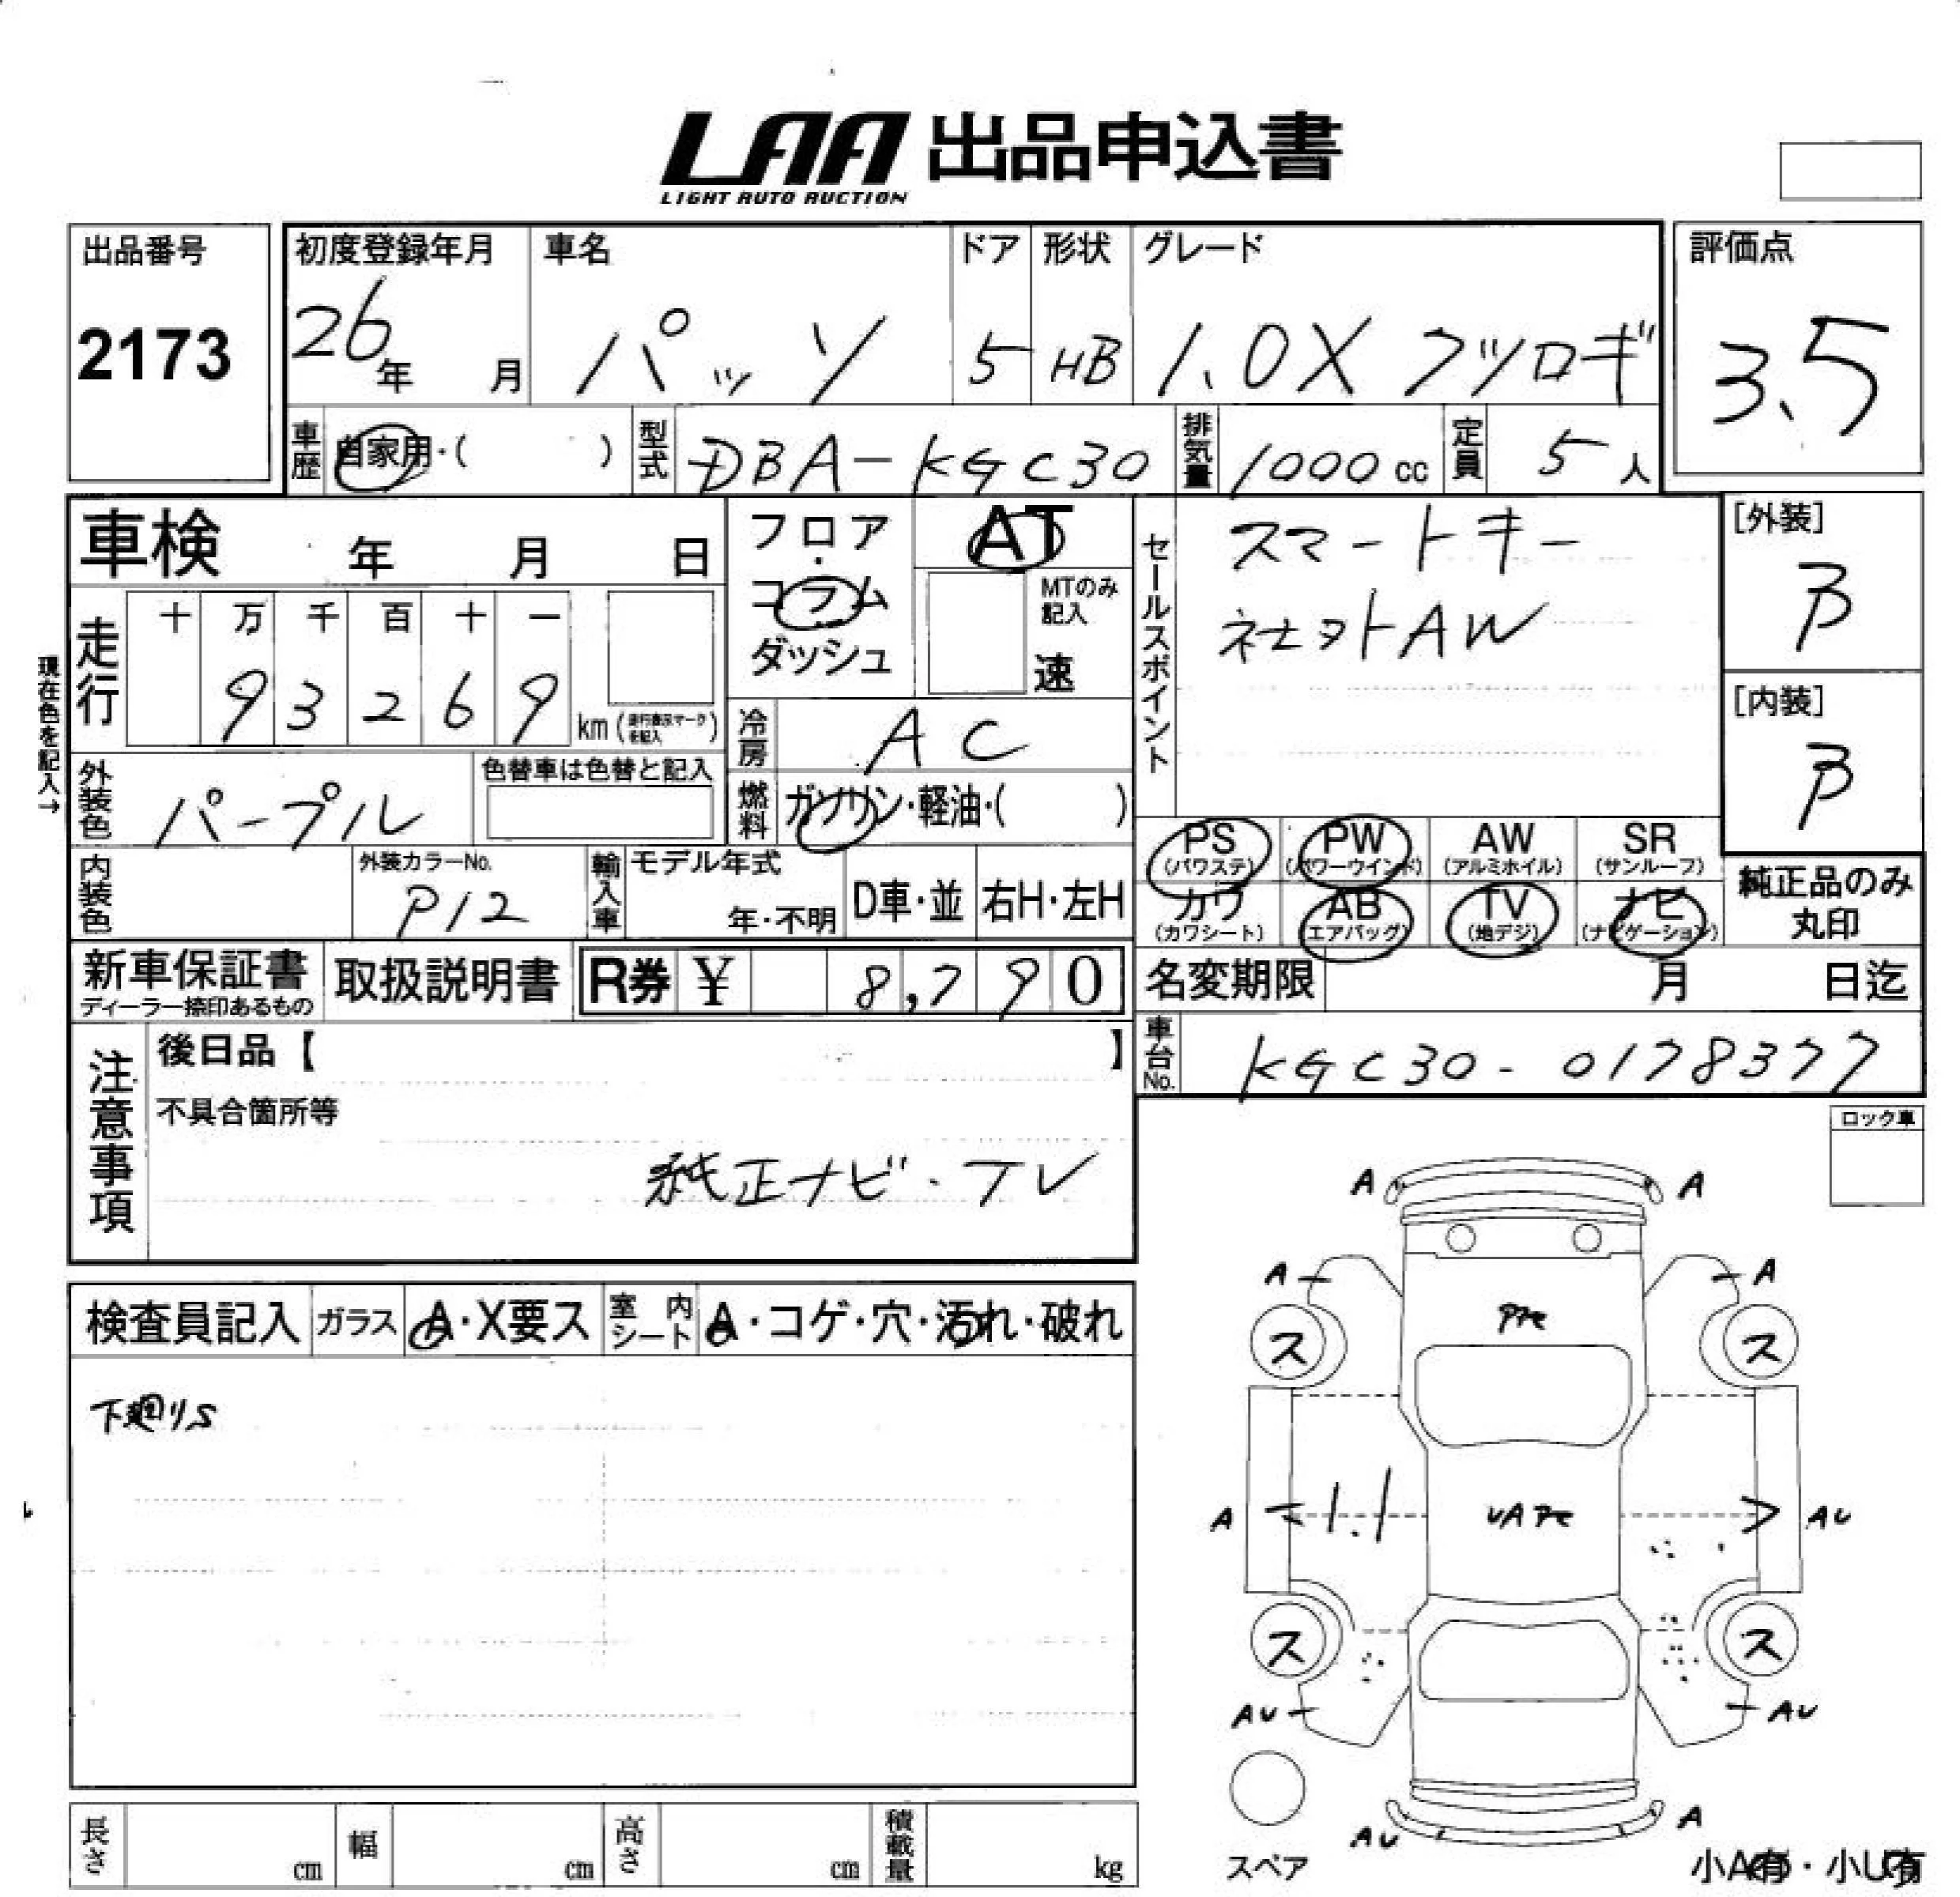 LAA 出品申込書
LIGHT AUTO AUCTION
出品番号
2173
初度登録年月
26年 月
車名
パッソ
ドア
5
形状
HB
グレード
1.0X クツロギ
評価点
3.5
車歴 自家用・( )
型式 DBA-KGC30
排気量 1000 cc
定員 5 人
車検 年 月 日
フロア・コラム
ダッシュ
AT
MTのみ記入
速
セールスポイント
スマートキー
社外AW
[外装]
B
[内装]
B
現在色を記入→
走行
十 万 千 百 十 一
9 3 2 6 9
km (走行表示マークを記入)
冷房 AC
外装色 パープル
色替車は色替と記入
燃料 ガソリン・軽油・( )
PS (パワステ)
PW (パワーウインド)
AW (アルミホイル)
SR (サンルーフ)
カワ (カワシート)
AB (エアバッグ)
TV (地デジ)
ナビ (ナビゲーション)
純正品のみ
丸印
内装色
外装カラーNo.
P12
輸入車
モデル年式
年・不明
D車・並
右H・左H
新車保証書
ディーラー捺印あるもの
取扱説明書
R券 ¥ 8,790
名変期限 月 日迄
車台No. KGC30-0178377
注意事項
後日品【 】
不具合箇所等
純正ナビ・TV
ロック車
検査員記入
ガラス A・X要ス
室内シート A・コゲ・穴・汚れ・破れ
下廻りS
A A
A A
ス ス
A 1.1 AU
ス ス
AU AU
スペア
AU A
小A有・小U有
長さ cm
幅 cm
高さ cm
積載量 kg